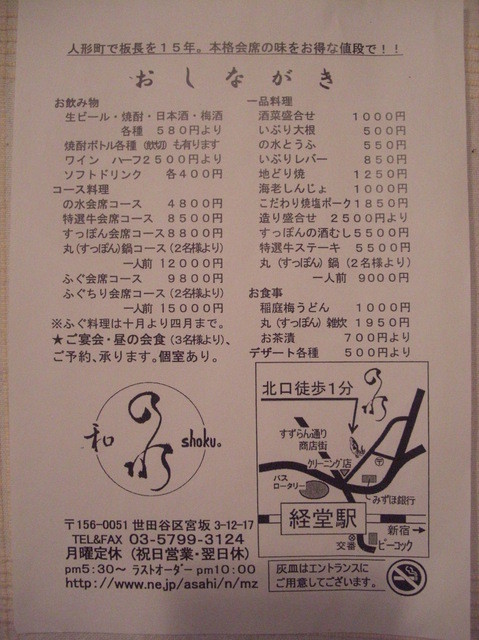 人形町で板長を15年。本格会席の味をお得な値段で！！
おしながき
お飲み物
生ビール・焼酎・日本酒・梅酒
各種 580円より
焼酎ボトル各種 も有ります
ワイン ハーフ2500円より
ソフトドリンク 各400円
コース料理
の水会席コース 4800円
特選牛会席コース 8500円
すっぽん会席コース8800円
丸(すっぽん)鍋コース(2名様より)
一人前 12000円
ふぐ会席コース 9800円
ふぐちり会席コース(2名様より)
一人前 15000円
※ふぐ料理は十月より四月まで。
★ご宴会・昼の会食(3名様より)、
ご予約、承ります。個室あり。
一品料理
酒菜盛合せ 1000円
いぶり大根 500円
の水とうふ 550円
いぶりレバー 850円
地どり焼 1250円
海老しんじょ 1000円
こだわり焼塩ポーク1850円
造り盛合せ 2500円より
すっぽんの酒むし5500円
特選牛ステーキ 5500円
丸(すっぽん)鍋(2名様より)
一人前 9000円
お食事
稲庭梅うどん 1000円
丸(すっぽん)雑炊 1950円
お茶漬 700円より
デザート各種 500円より
和 の水 shoku。
北口徒歩1分
の水
すずらん通り
商店街
クリーニング店
〒
バス
ロータリー
みずほ銀行
経堂駅
新宿→
交番
ピーコック
〒156-0051 世田谷区宮坂 3-12-17
TEL&FAX 03-5799-3124
月曜定休(祝日営業・翌日休)
pm5:30～ ラストオーダー pm10:00
http://www.ne.jp/asahi/n/mz
灰皿はエントランスに
ご用意してございます。